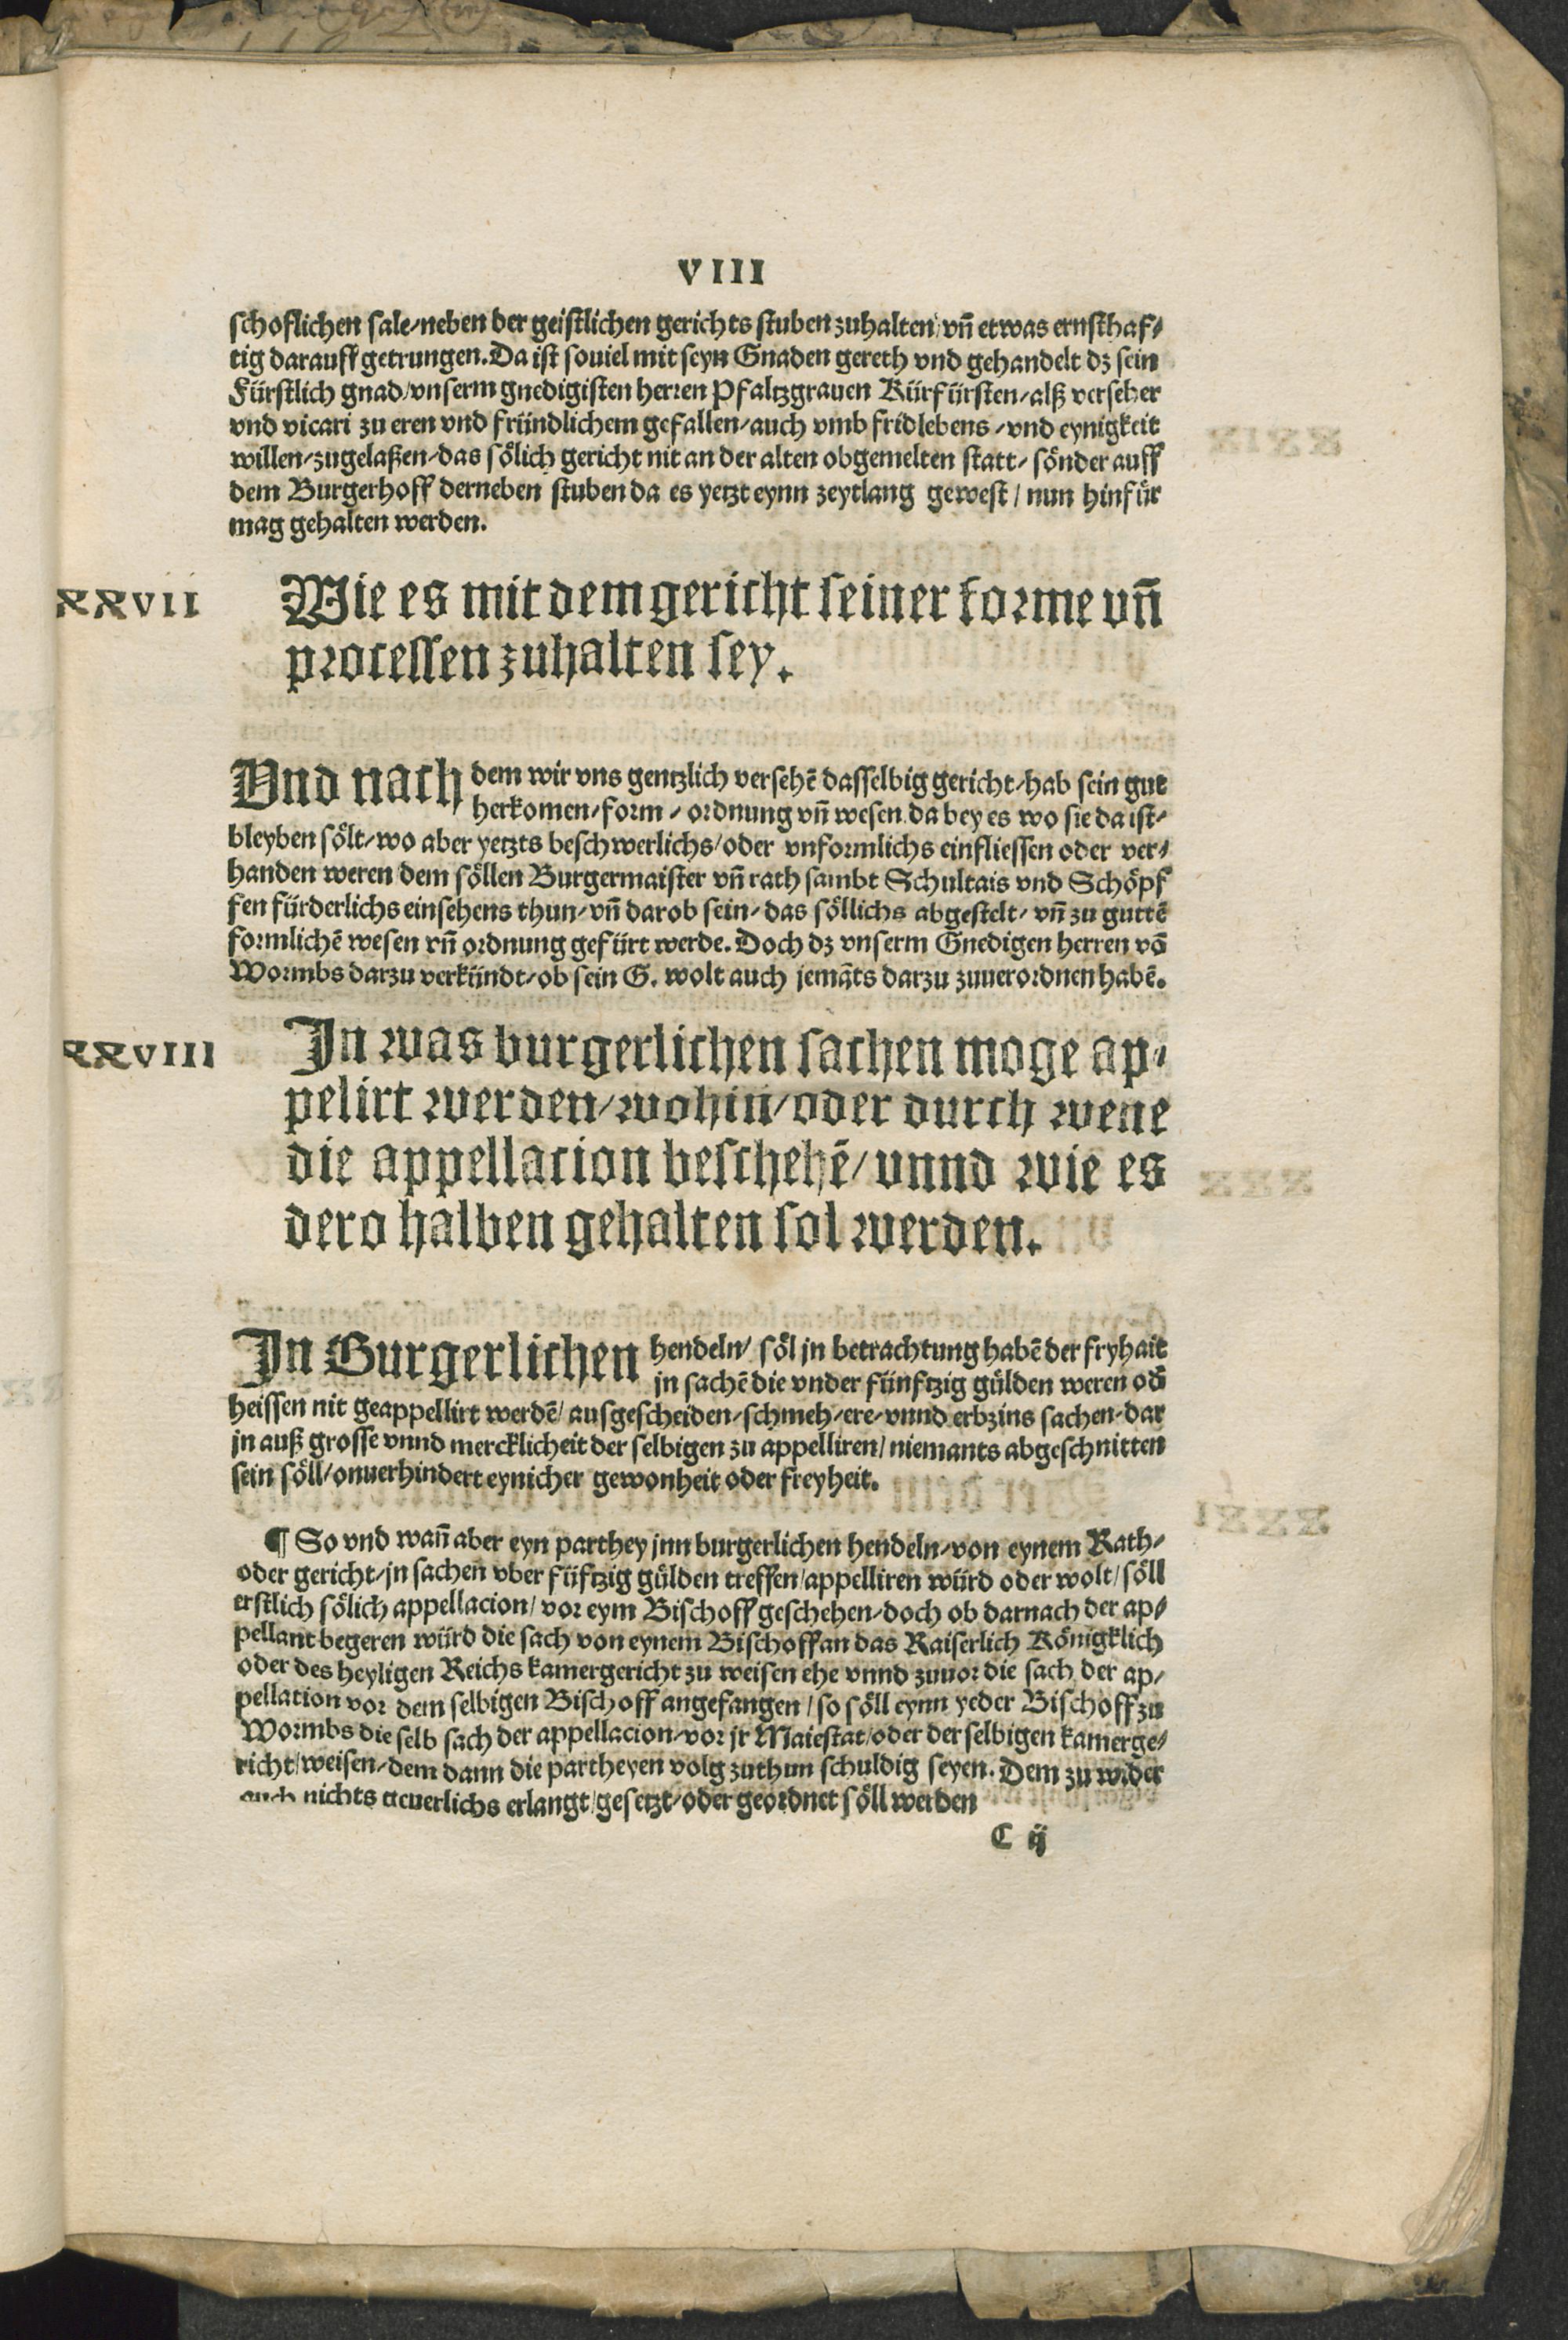 VIII
schoflichen sale/neben der geistlichen gerichts stuben zuhalten/vñ etwas ernsthaf-
tig darauff getrungen. Da ist souiel mit seyn Gnaden gereth vnd gehandelt dz sein
Fürstlich gnad/vnserm gnedigisten herren Pfaltzgrauen Kürfürsten/alß verseher
vnd vicari zu eren vnd fründlichem gefallen/auch vmb fridlebens/vnd eynigkeit
willen/zugelaßen/das sölich gericht nit an der alten obgemelten statt/sönder auff
dem Burgerhoff derneben stuben da es yetzt eynn zeytlang gewest/nun hinfür
mag gehalten werden.
XXVII
Wie es mit dem gericht seiner forme vñ
processen zuhalten sey.
Vnd nach dem wir vns gentzlich versehē dasselbig gericht/hab sein gut
herkomen/form/ordnung vñ wesen da bey es wo sie da ist/
bleyben sölt/wo aber yetzts beschwerlichs/oder vnformlichs einfliessen oder ver-
handen weren dem söllen Burgermaister vñ rath sambt Schultais vnd Schöpf
fen fürderlichs einsehens thun/vñ darob sein/das söllichs abgestelt/vñ zu guttē
formlichē wesen vñ ordnung gefürt werde. Doch dz vnserm Gnedigen herren vō
Wormbs darzu verkündt/ob sein G. wolt auch jemāts darzu zuuerordnen habē.
XXVIII
In was burgerlichen sachen moge ap-
pelirt werden/wohin/oder durch wene
die appellacion beschehē/vnnd wie es
dero halben gehalten sol werden.
In Burgerlichen hendeln/söl jn betrachtung habē der fryhait
jn sachē die vnder fünftzig gülden weren od̄
heissen nit geappellirt werdē/ausgescheiden/schmeh/ere/vnnd erbzins sachen/dar
jn auß grosse vnnd mercklicheit der selbigen zu appelliren/niemants abgeschnitten
sein söll/onuerhindert eynicher gewonheit oder freyheit.
¶ So vnd wañ aber eyn parthey jnn burgerlichen hendeln/von eynem Rath/
oder gericht/jn sachen vber füftzig gülden treffen/appelliren würd oder wolt/söll
erstlich sölich appellacion/vor eym Bischoff geschehen/doch ob darnach der ap-
pellant begeren würd die sach von eynem Bischoff an das Kaiserlich Königklich
oder des heyligen Reichs kamergericht zu weisen ehe vnnd zuuor die sach der ap-
pellation vor dem selbigen Bischoff angefangen/so söll eynn yeder Bischoff zu
Wormbs die selb sach der appellacion/vor jr Maiestat/oder der selbigen kamerge-
richt/weisen/dem dann die partheyen volg zuthun schuldig seyen. Dem zu wider
auch nichts neuerlichs erlangt/gesetzt/oder geordnet söll werden
C ij